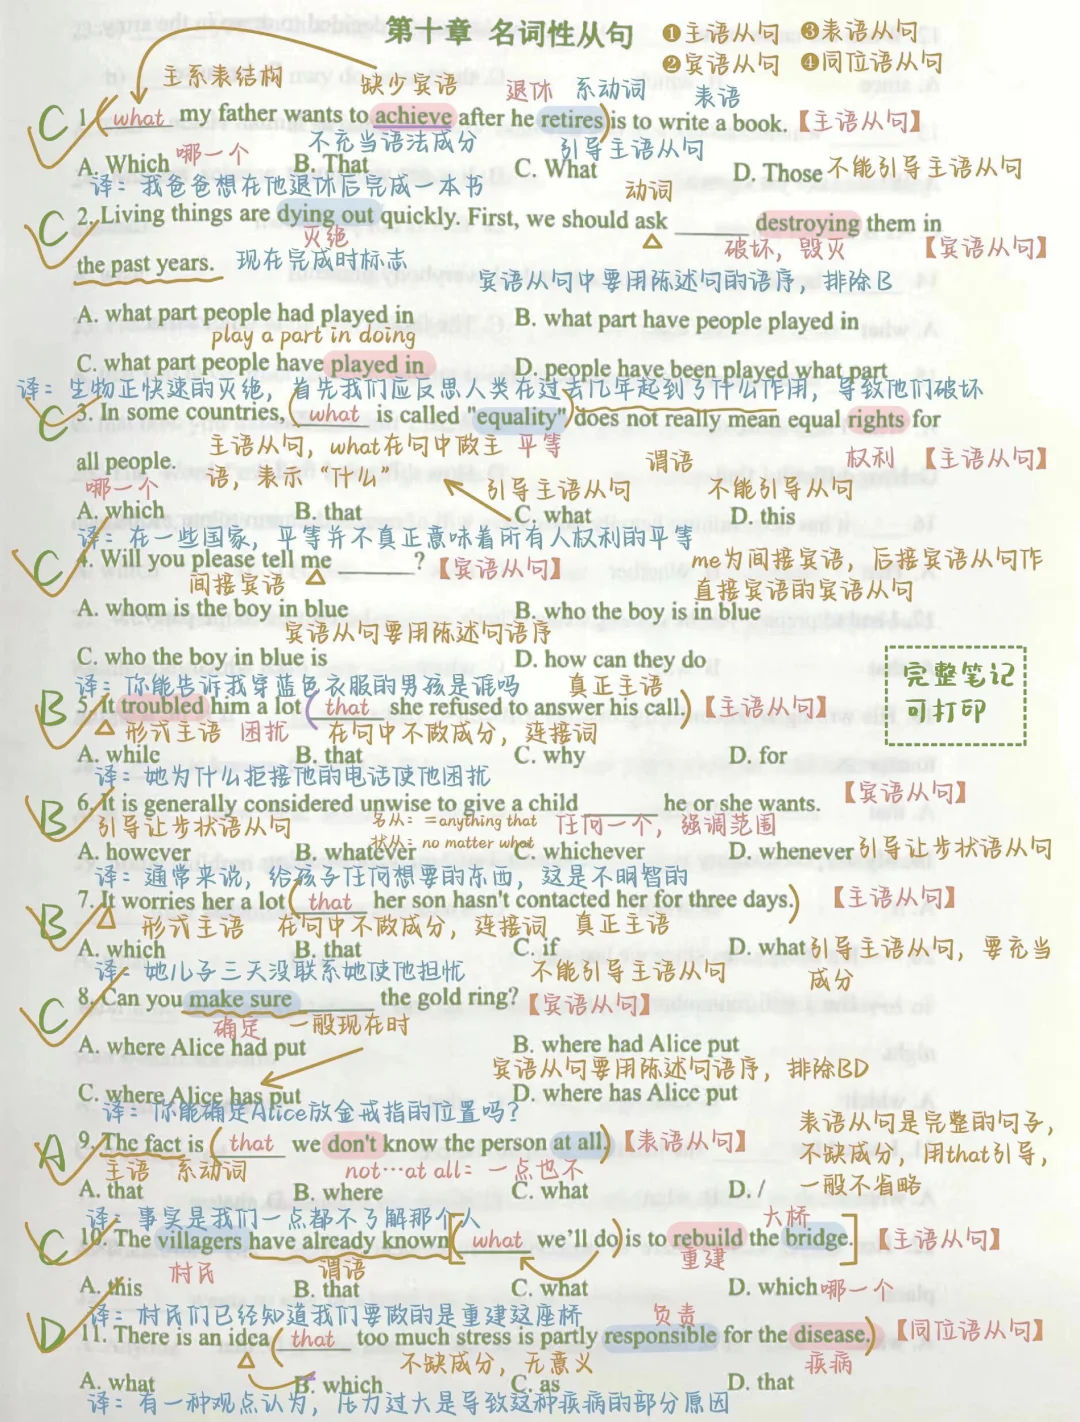 第十章 名词性从句 ❶主语从句 ❸表语从句
❷宾语从句 ❹同位语从句
主系表结构 缺少宾语 退休 系动词 表语
C 1.(what my father wants to achieve after he retires) is to write a book.【主语从句】
不充当语法成分 引导主语从句
A. Which 哪一个 B. That C. What D. Those 不能引导主语从句
译: 我爸爸想在他退休后完成一本书 动词
C 2. Living things are dying out quickly. First, we should ask ______ destroying them in
灭绝 破坏, 毁灭 【宾语从句】
the past years. 现在完成时标志
宾语从句中要用陈述句的语序, 排除B
A. what part people had played in B. what part have people played in
play a part in doing
C. what part people have played in D. people have been played what part
译: 生物正快速的灭绝, 首先我们应反思人类在过去几年起到了什么作用, 导致他们破坏
C 3. In some countries, (what is called "equality") does not really mean equal rights for
主语从句, what在句中做主 平等 谓语 权利 【主语从句】
all people.
语, 表示“什么”
哪一个 引导主语从句 不能引导从句
A. which B. that C. what D. this
译: 在一些国家, 平等并不真正意味着所有人权利的平等
C 4. Will you please tell me ______?【宾语从句】 me为间接宾语, 后接宾语从句作
间接宾语 直接宾语的宾语从句
A. whom is the boy in blue B. who the boy is in blue
宾语从句要用陈述句语序
C. who the boy in blue is D. how can they do
完整笔记
可打印
译: 你能告诉我穿蓝色衣服的男孩是谁吗 真正主语
B 5. It troubled him a lot (that she refused to answer his call.)【主语从句】
形式主语 困扰 在句中不做成分, 连接词
A. while B. that C. why D. for
译: 她为什么拒接他的电话使他困扰
B 6. It is generally considered unwise to give a child ______ he or she wants. 【宾语从句】
引导让步状语从句 名从: =anything that 任何一个, 强调范围
状从: no matter what
A. however B. whatever C. whichever D. whenever 引导让步状语从句
译: 通常来说, 给孩子任何想要的东西, 这是不明智的
B 7. It worries her a lot (that her son hasn't contacted her for three days.) 【主语从句】
形式主语 在句中不做成分, 连接词 真正主语
A. which B. that C. if D. what 引导主语从句, 要充当
成分
译: 她儿子三天没联系她使他担忧 不能引导主语从句
C 8. Can you make sure ______ the gold ring?【宾语从句】
确定 一般现在时
A. where Alice had put B. where had Alice put
宾语从句要用陈述句语序, 排除BD
C. where Alice has put D. where has Alice put
译: 你能确定Alice放金戒指的位置吗?
A 9. The fact is (that we don't know the person at all.)【表语从句】
表语从句是完整的句子,
不缺成分, 用that引导,
一般不省略
主语 系动词 not…at all: 一点也不
A. that B. where C. what D. /
译: 事实是我们一点都不了解那个人 大桥
C 10. The villagers have already known [(what we’ll do) is to rebuild the bridge.]【主语从句】
村民 谓语 重建
A. this B. that C. what D. which 哪一个
译: 村民们已经知道我们要做的是重建这座桥 负责
D 11. There is an idea (that too much stress is partly responsible for the disease.)【同位语从句】
不缺成分, 无意义 疾病
A. what B. which C. as D. that
译: 有一种观点认为, 压力过大是导致这种疾病的部分原因